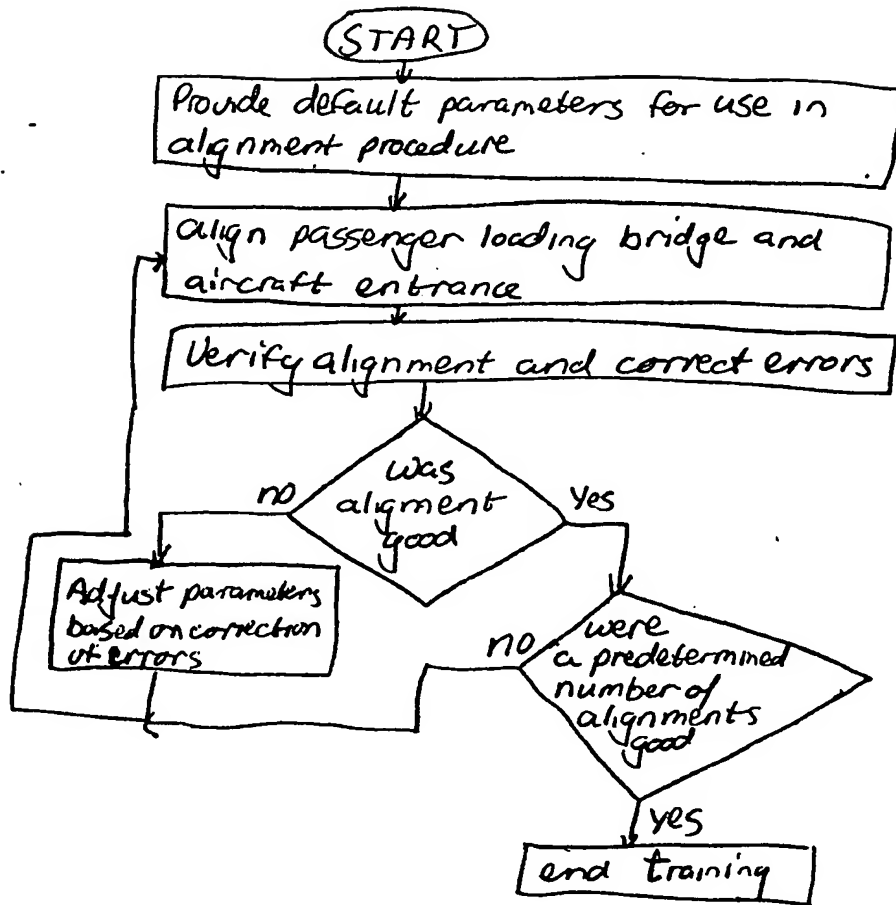 START
Provide default parameters for use in
alignment procedure
align passenger loading bridge and
aircraft entrance
Verify alignment and correct errors
was
aligment
good
no
Yes
Adjust parameters
based on correction
of errors
no
were
a predetermined
number of
alignments
good
yes
end training